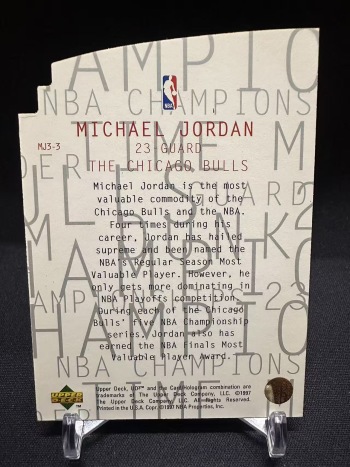 NBA CHAMPIONS
MICHAEL JORDAN
MJ3-3
23 GUARD
THE CHICAGO BULLS
Michael Jordan is the most
valuable commodity of the
Chicago Bulls and the NBA.
Four times during his
career, Jordan has hailed
supreme and been named the
NBA's Regular Season Most
Valuable Player. However, he
only gets more dominating in
NBA Playoffs competition.
During each of the Chicago
Bulls' five NBA Championship
series, Jordan also has
earned the NBA Finals Most
Valuable Player Award.
NBA CHAMPIONS
UPPER
DECK
Upper Deck, UD³ and the Card/Hologram combination are
trademarks of The Upper Deck Company, LLC. ©1997
The Upper Deck Company, LLC. All Rights Reserved.
Printed in the U.S.A. Copr. ©1997 NBA Properties, Inc.